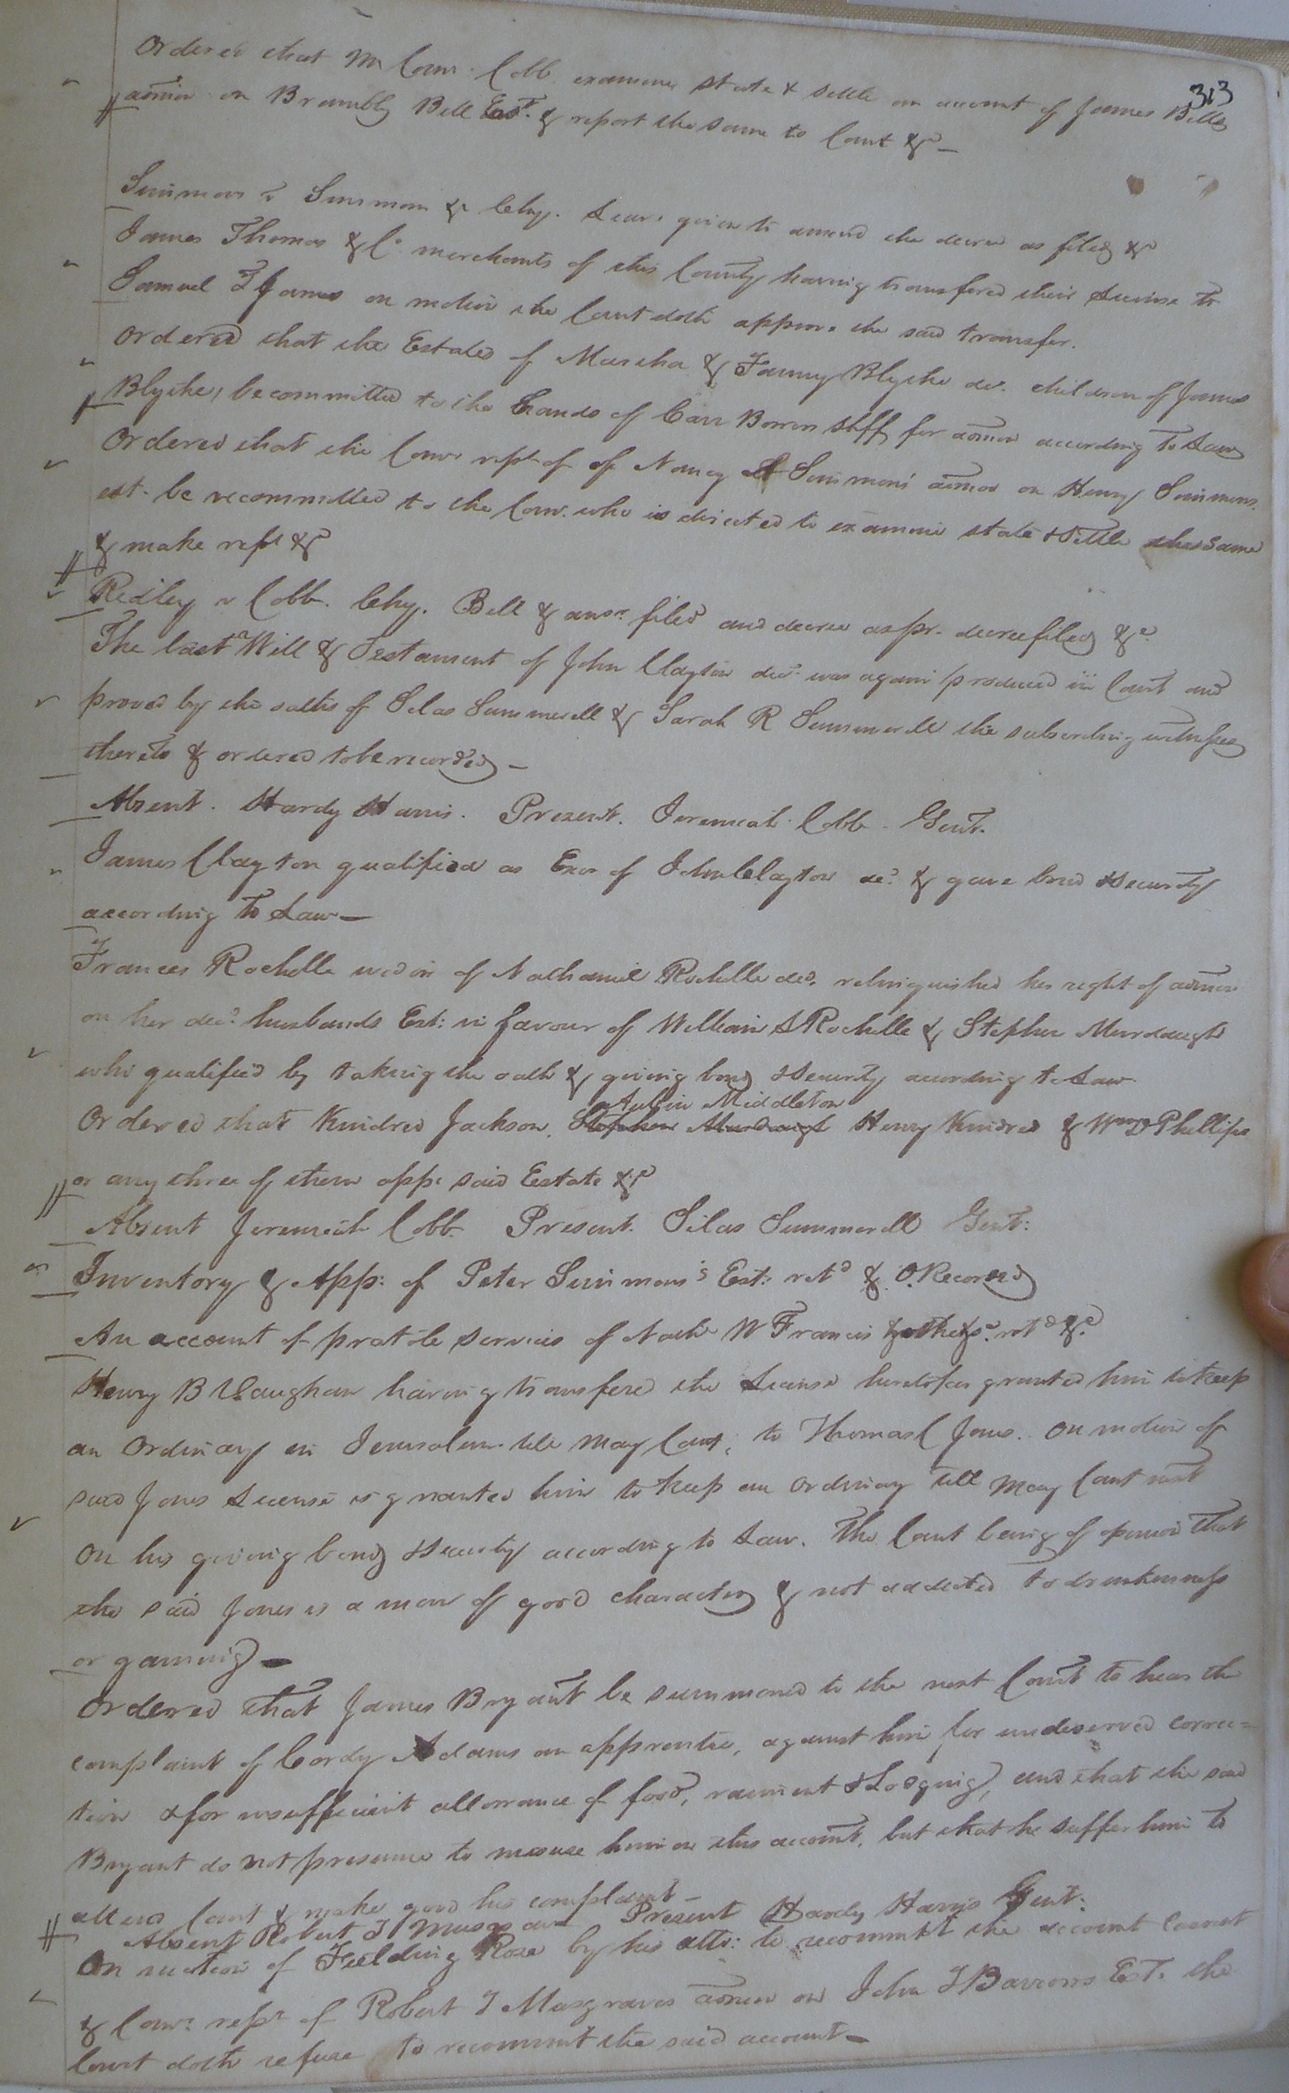 313
Ordered that Mr Comr. Cobb examine state & settle an account of James Bells
admon on Brambly Bell Est. & report the same to Court &c —
Simmons v Simmons &c Chy. Leave given to amend the decree as filed &c
James Thomas & Co merchants of this County having transfered their License to
Samuel T James on motion the Court doth approve the said transfer.
Ordered that the Estates of & Fanny Blythe dec. children of James
Blythe, be committed to the hands of Carr Bowers Shff for admon according to Law
Ordered that the Comr rept of of Nancy Simmons' admor on Henry Simmons
est. be recommitted to the Com. who is directed to examine state & settle the same
& make rept &c
Ridley v Cobb. Chy. Bill & ansr. filed and decree as pr. decree filed &c
The last Will & Testament of John Clayton decd. was again produced in Court and
proved by the oaths of Silas Summerell & Sarah R Summerell the subscribing witnesses
thereto & ordered to be recorded —
Absent. Hardy Harris. Present. Jeremiah Cobb. Gent.
James Clayton qualified as Exor of John Clayton decd. & gave bond & security
according to Law —
Frances Rochelle widow of Nathaniel Rochelle decd. relinquished her right of admon
on her decd. husbands Est: in favour of William S Rochelle & Stephen Murdaugh
who qualified by taking the oath & giving bond & security according to Law
Autin Middleton
Ordered that Kindred Jackson, Stephen Murdaugh Henry Kindred & Wm D Phillips
or any three of them appr. said Estate &c
Absent Jeremiah Cobb. Present. Silas Summerell Gent:
Inventory & App: of Peter Simmons's Est: retd & O. Record
An account of services of W Francis retd &c.
Henry B Vaughan having transfered the License heretofore granted him to keep
an Ordinary in Jerusalem till May Court, to Thomas C Jones. On motion of
said Jones License is granted him to keep an ordinary till May Court next
On his giving bond & security according to Law. The Court being of opinion that
the said Jones is a man of good character & not addicted to drunkenness
or gaming —
Ordered that James Bryant be summoned to the next Court to hear the
complaint of Cordy Adams an apprentice, against him for undeserved correc=
tion & for insufficient allowance of food, raiment & Lodging, and that the said
Bryant do not presume to misuse him on this account, but that he suffer him to
attend Court & make good his complaint —
Absent Robert T Musgrave Present Hardy Harris Gent:
On motion of Fielding Rose by his atto: to recommit the account Current
& Comr. rept of Robert T Musgraves admon on John T Barrons Est. the
Court doth refuse to recommit the said account —